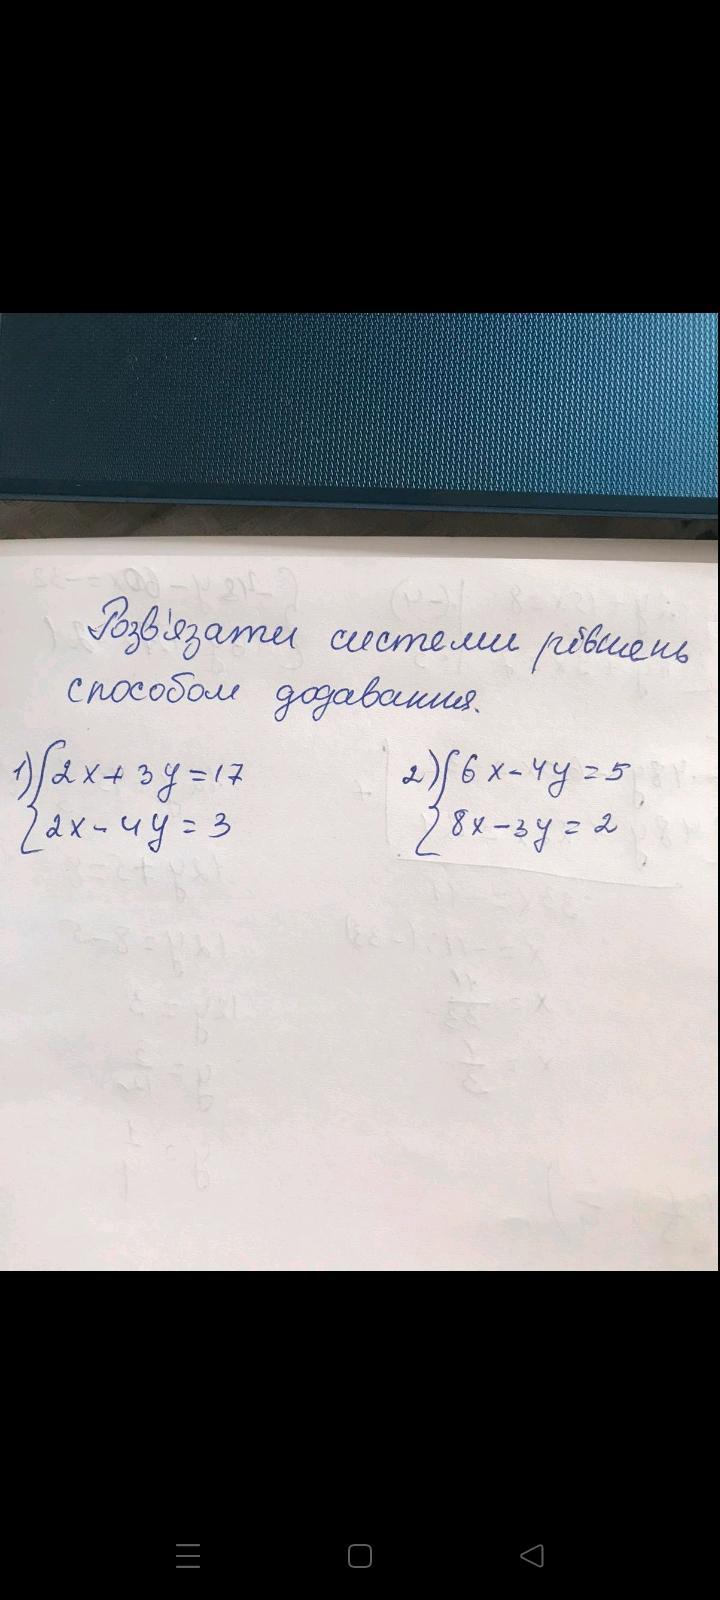 Розв'язати системи рівнень
способом додавання.
1) { 2x + 3y = 17
2x - 4y = 3
2) { 6x - 4y = 5
8x - 3y = 2